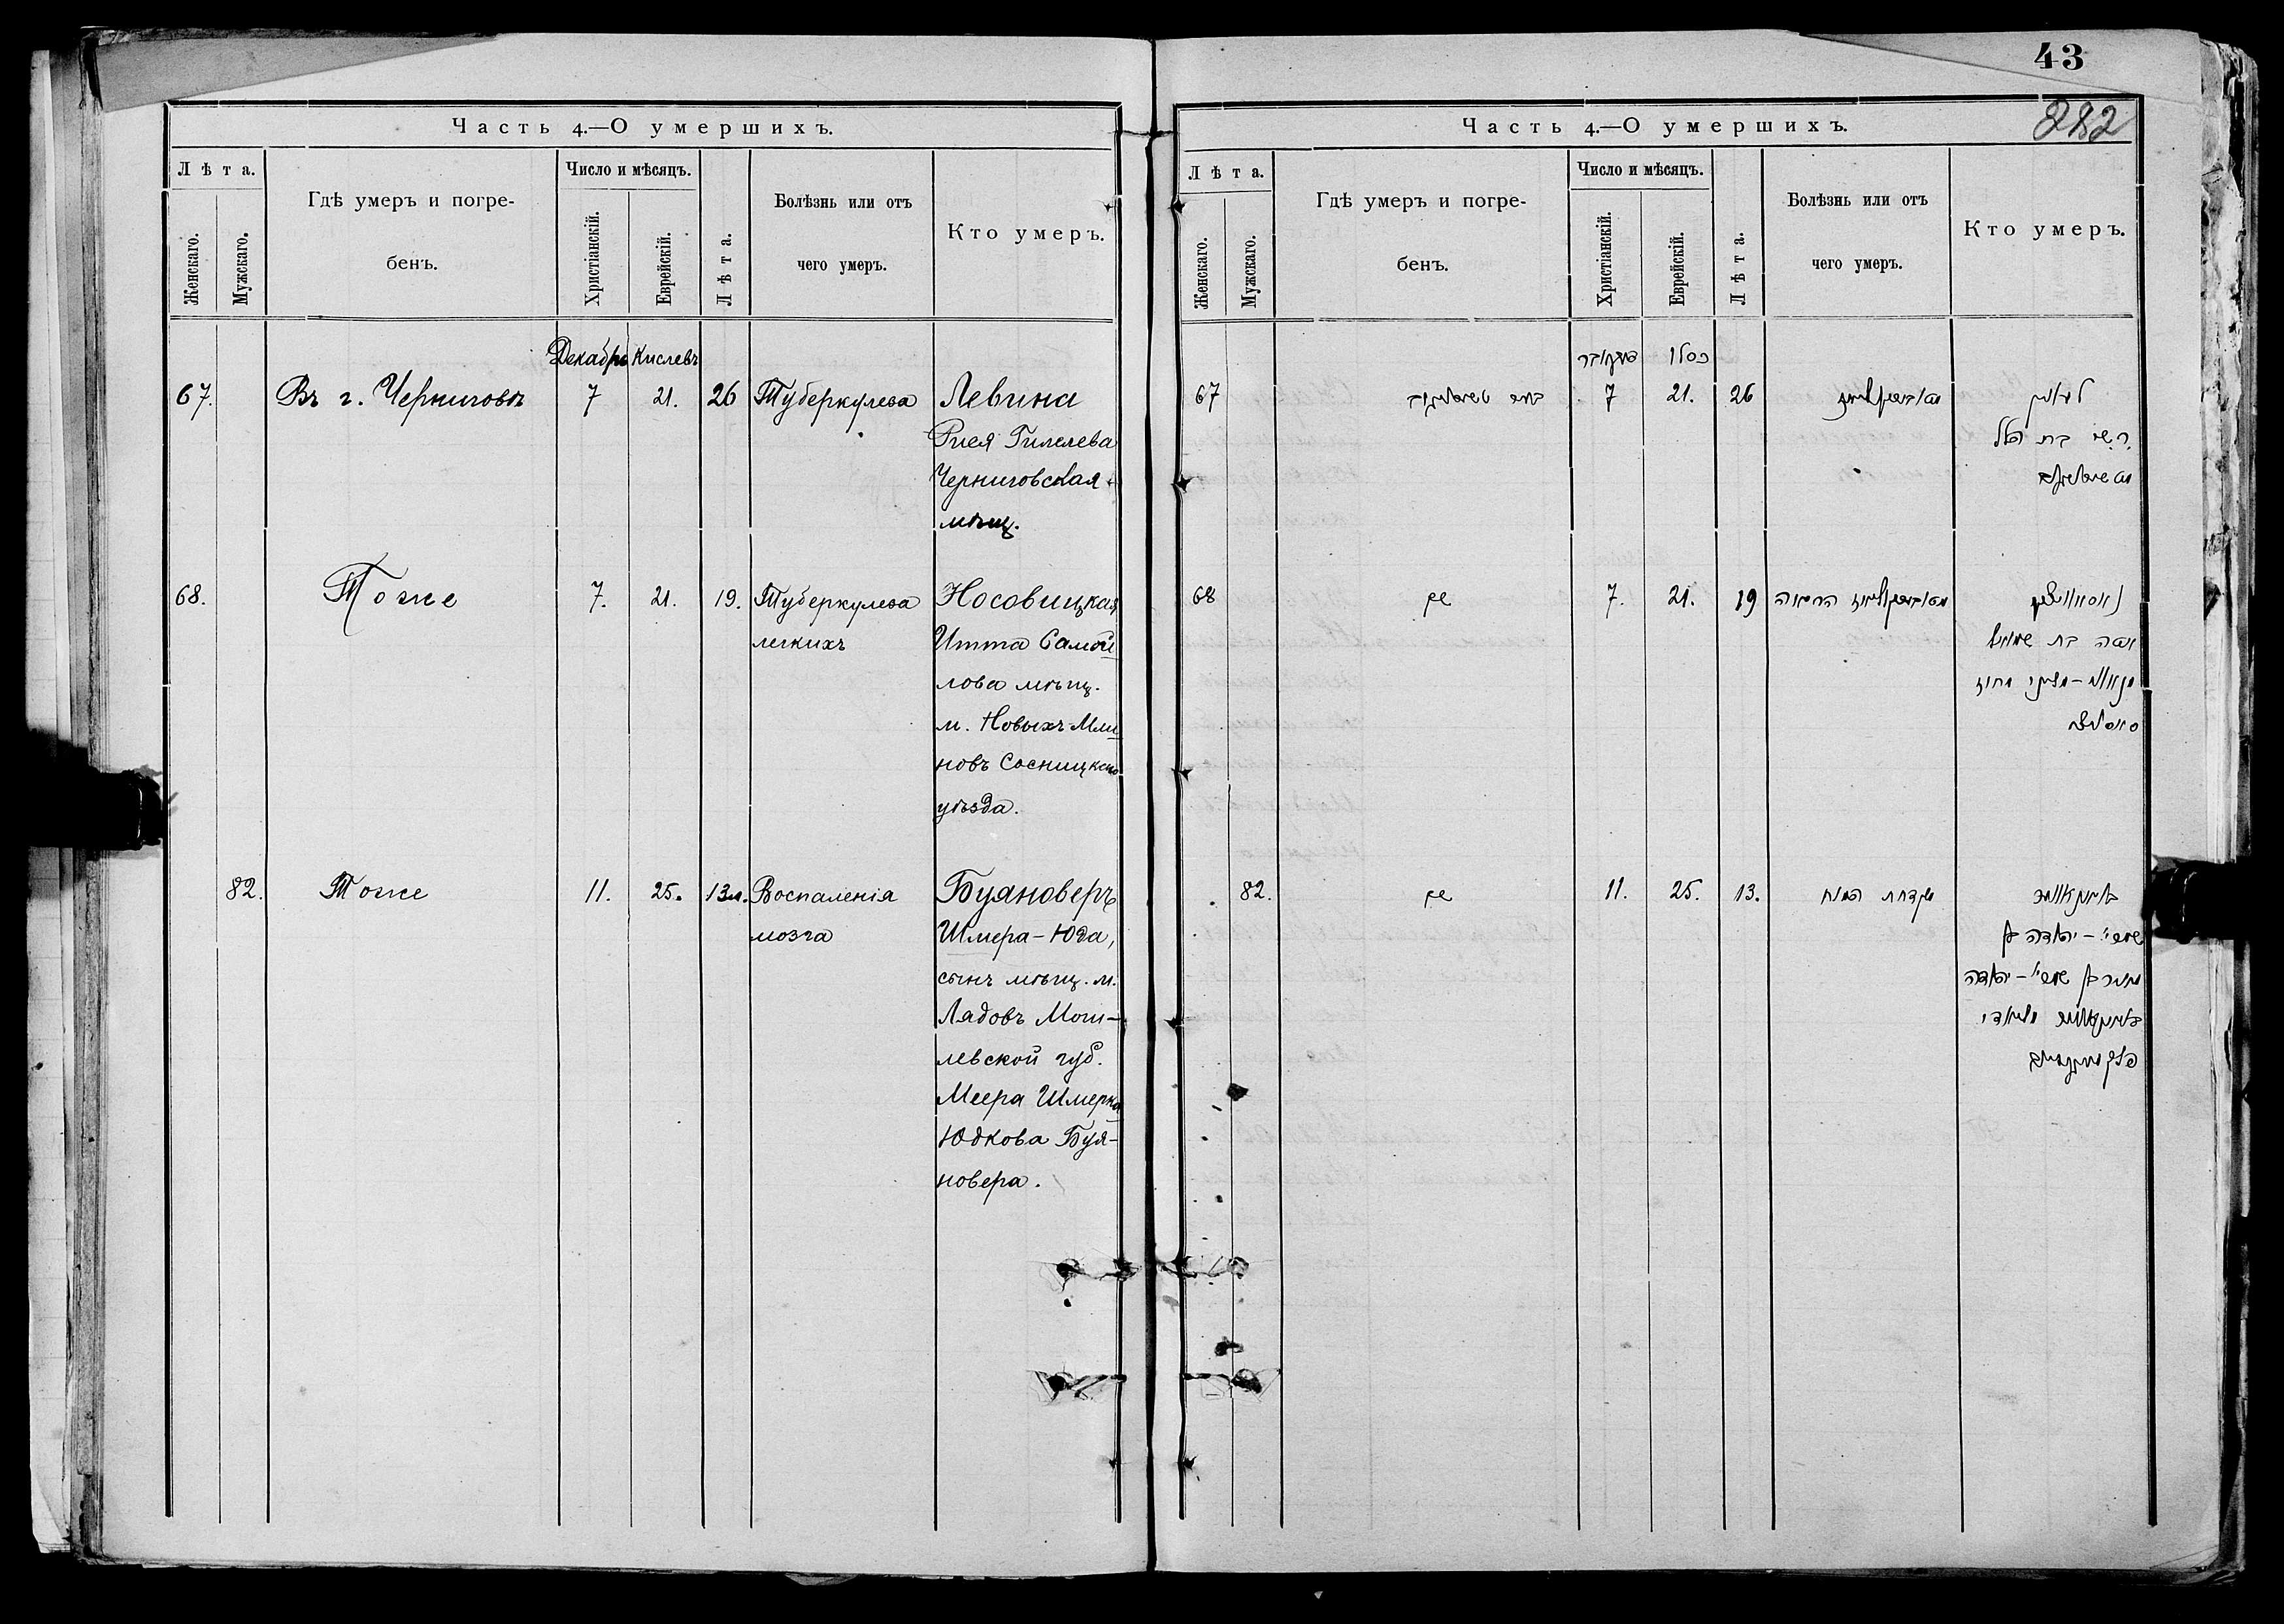 43
282
Часть 4.—О умершихъ.
Лѣта.
Женскаго.
Мужскаго.
Гдѣ умеръ и погре-
бенъ.
Число и мѣсяцъ.
Христіанскій.
Еврейскій.
Лѣта.
Болѣзнь или отъ
чего умеръ.
Кто умеръ.
Декабрь Кислевъ
67. Въ г. Черниговѣ 7 21. 26 Туберкулеза Левина
Рися Гилелева
Черниговская
мѣщ.
68. Тоже 7. 21. 19. Туберкулеза Носовицкая
легкихъ Итта Самой
лова мѣщ.
м. Новыхъ Мли
новъ Сосницкаго
уѣзда.
82. Тоже 11. 25. 13л. Воспаленія Буяноверъ
мозга Шмера-Юда,
сынъ мѣщ. м.
Лядовъ Моги-
левской губ.
Меера Шмерка
Юдкова Буя-
новера.
Часть 4.—О умершихъ.
Лѣта.
Женскаго.
Мужскаго.
Гдѣ умеръ и погре-
бенъ.
Число и мѣсяцъ.
Христіанскій.
Еврейскій.
Лѣта.
Болѣзнь или отъ
чего умеръ.
Кто умеръ.
כסלו
67 7 21. 26
בת הלל
68 שם 7. 21. 19 הריאה
בת שמואל
82. שם 11. 25. 13. קדחת המוח
יהודה
יהודה